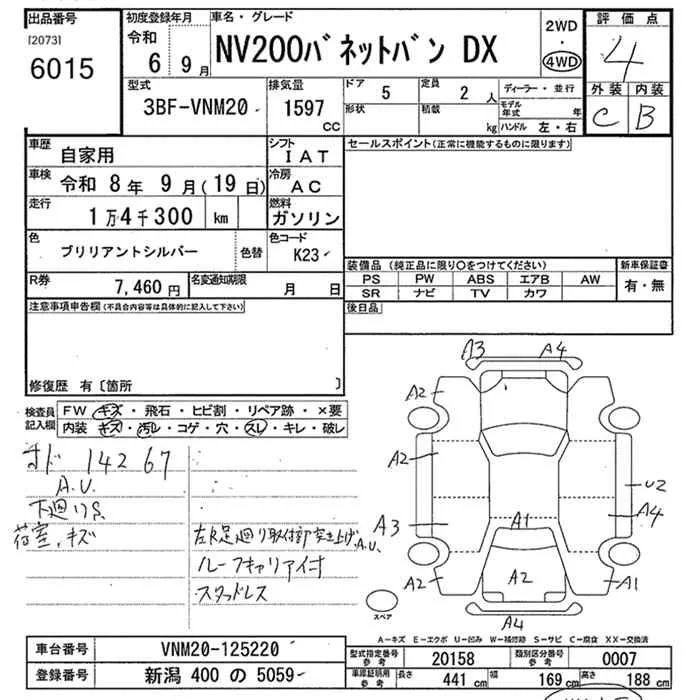 出品番号
[2073]
6015
初度登録年月
令和
6 9月
車名・グレード
NV200バネットバン DX
2WD
・
4WD
評価点
4
外装 内装
C B
型式
3BF-VNM20
排気量
1597
CC
ドア
5
定員
2 人
形状
積載
kg
ディーラー・並行
モデル年式 年
ハンドル 左・右
車歴
自家用
シフト
IAT
車検
令和 8年 9月(19日)
冷房
AC
走行
1万4千300 km
燃料
ガソリン
色
ブリリアントシルバー
色替
色コード
K23
R券
7,460円
名変通知期限
月 日
セールスポイント(正常に機能するものに限ります)
装備品(純正品に限り○をつけてください)
PS PW ABS エアB AW
SR ナビ TV カワ
新車保証書
有・無
後日品
注意事項申告欄(不具合内容等は具体的に記入して下さい)
修復歴 有〔箇所 〕
検査員
記入欄
FW キズ・飛石・ヒビ割・リペア跡・×要
内装 キズ・汚レ・コゲ・穴・スレ・キレ・破レ
オド 14267
A.U.
下廻りS
荷室、キズ
左R足廻り取付部突き上げ、A.U.
ルーフキャリア付
スタッドレス
A3 A4
A2
A2
U2
A3 A1 A4
A2 A2 A1
A4
スペア
A-キズ E-エクボ U-凹み W-補修跡 S-サビ C-腐食 XX-交換済
車台番号
VNM20-125220
登録番号
新潟 400 の 5059
型式指定番号
参考
20158
類別区分番号
参考
0007
車庫証明用
参考
長さ
441 cm
幅
169 cm
高さ
188 cm